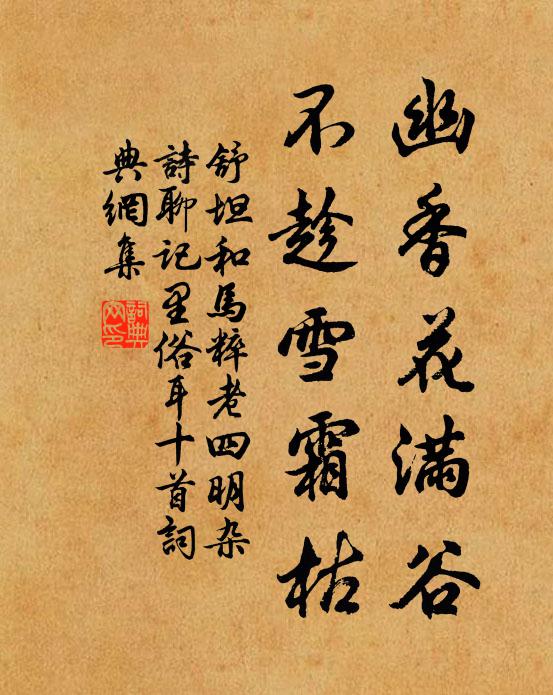 幽香花满谷
不趁雪霜枯
舒坦和馬粹老四明杂
詩聊記里俗耳十首詞
典網集
詞典
网印